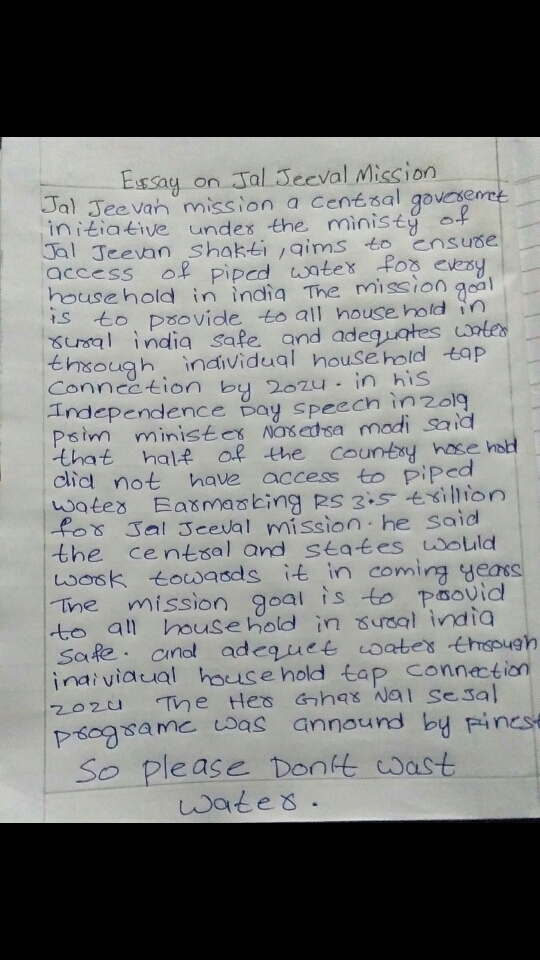 Essay on Jal Jeeval Mission
Jal Jeevan mission a central goveremet
initiative under the ministy of
Jal Jeevan Shakti, aims to ensure
access of piped water for every
household in india The mission goal
is to provide to all household in
rural india safe and adequates water
through individual household tap
Connection by 2024. in his
Independence Day speech in 2019
prim minister Naredra modi said
that half of the country hose hold
did not have access to piped
water Earmarking RS 3.5 trillion
for Jal Jeeval mission. he said
the central and states would
work towards it in coming years
The mission goal is to poovid
to all household in rural india
safe. and adequet water through
inaividual household tap connection
2024 The Her Ghar Nal Se Jal
programe was annound by finest
So please Don't wast
water.